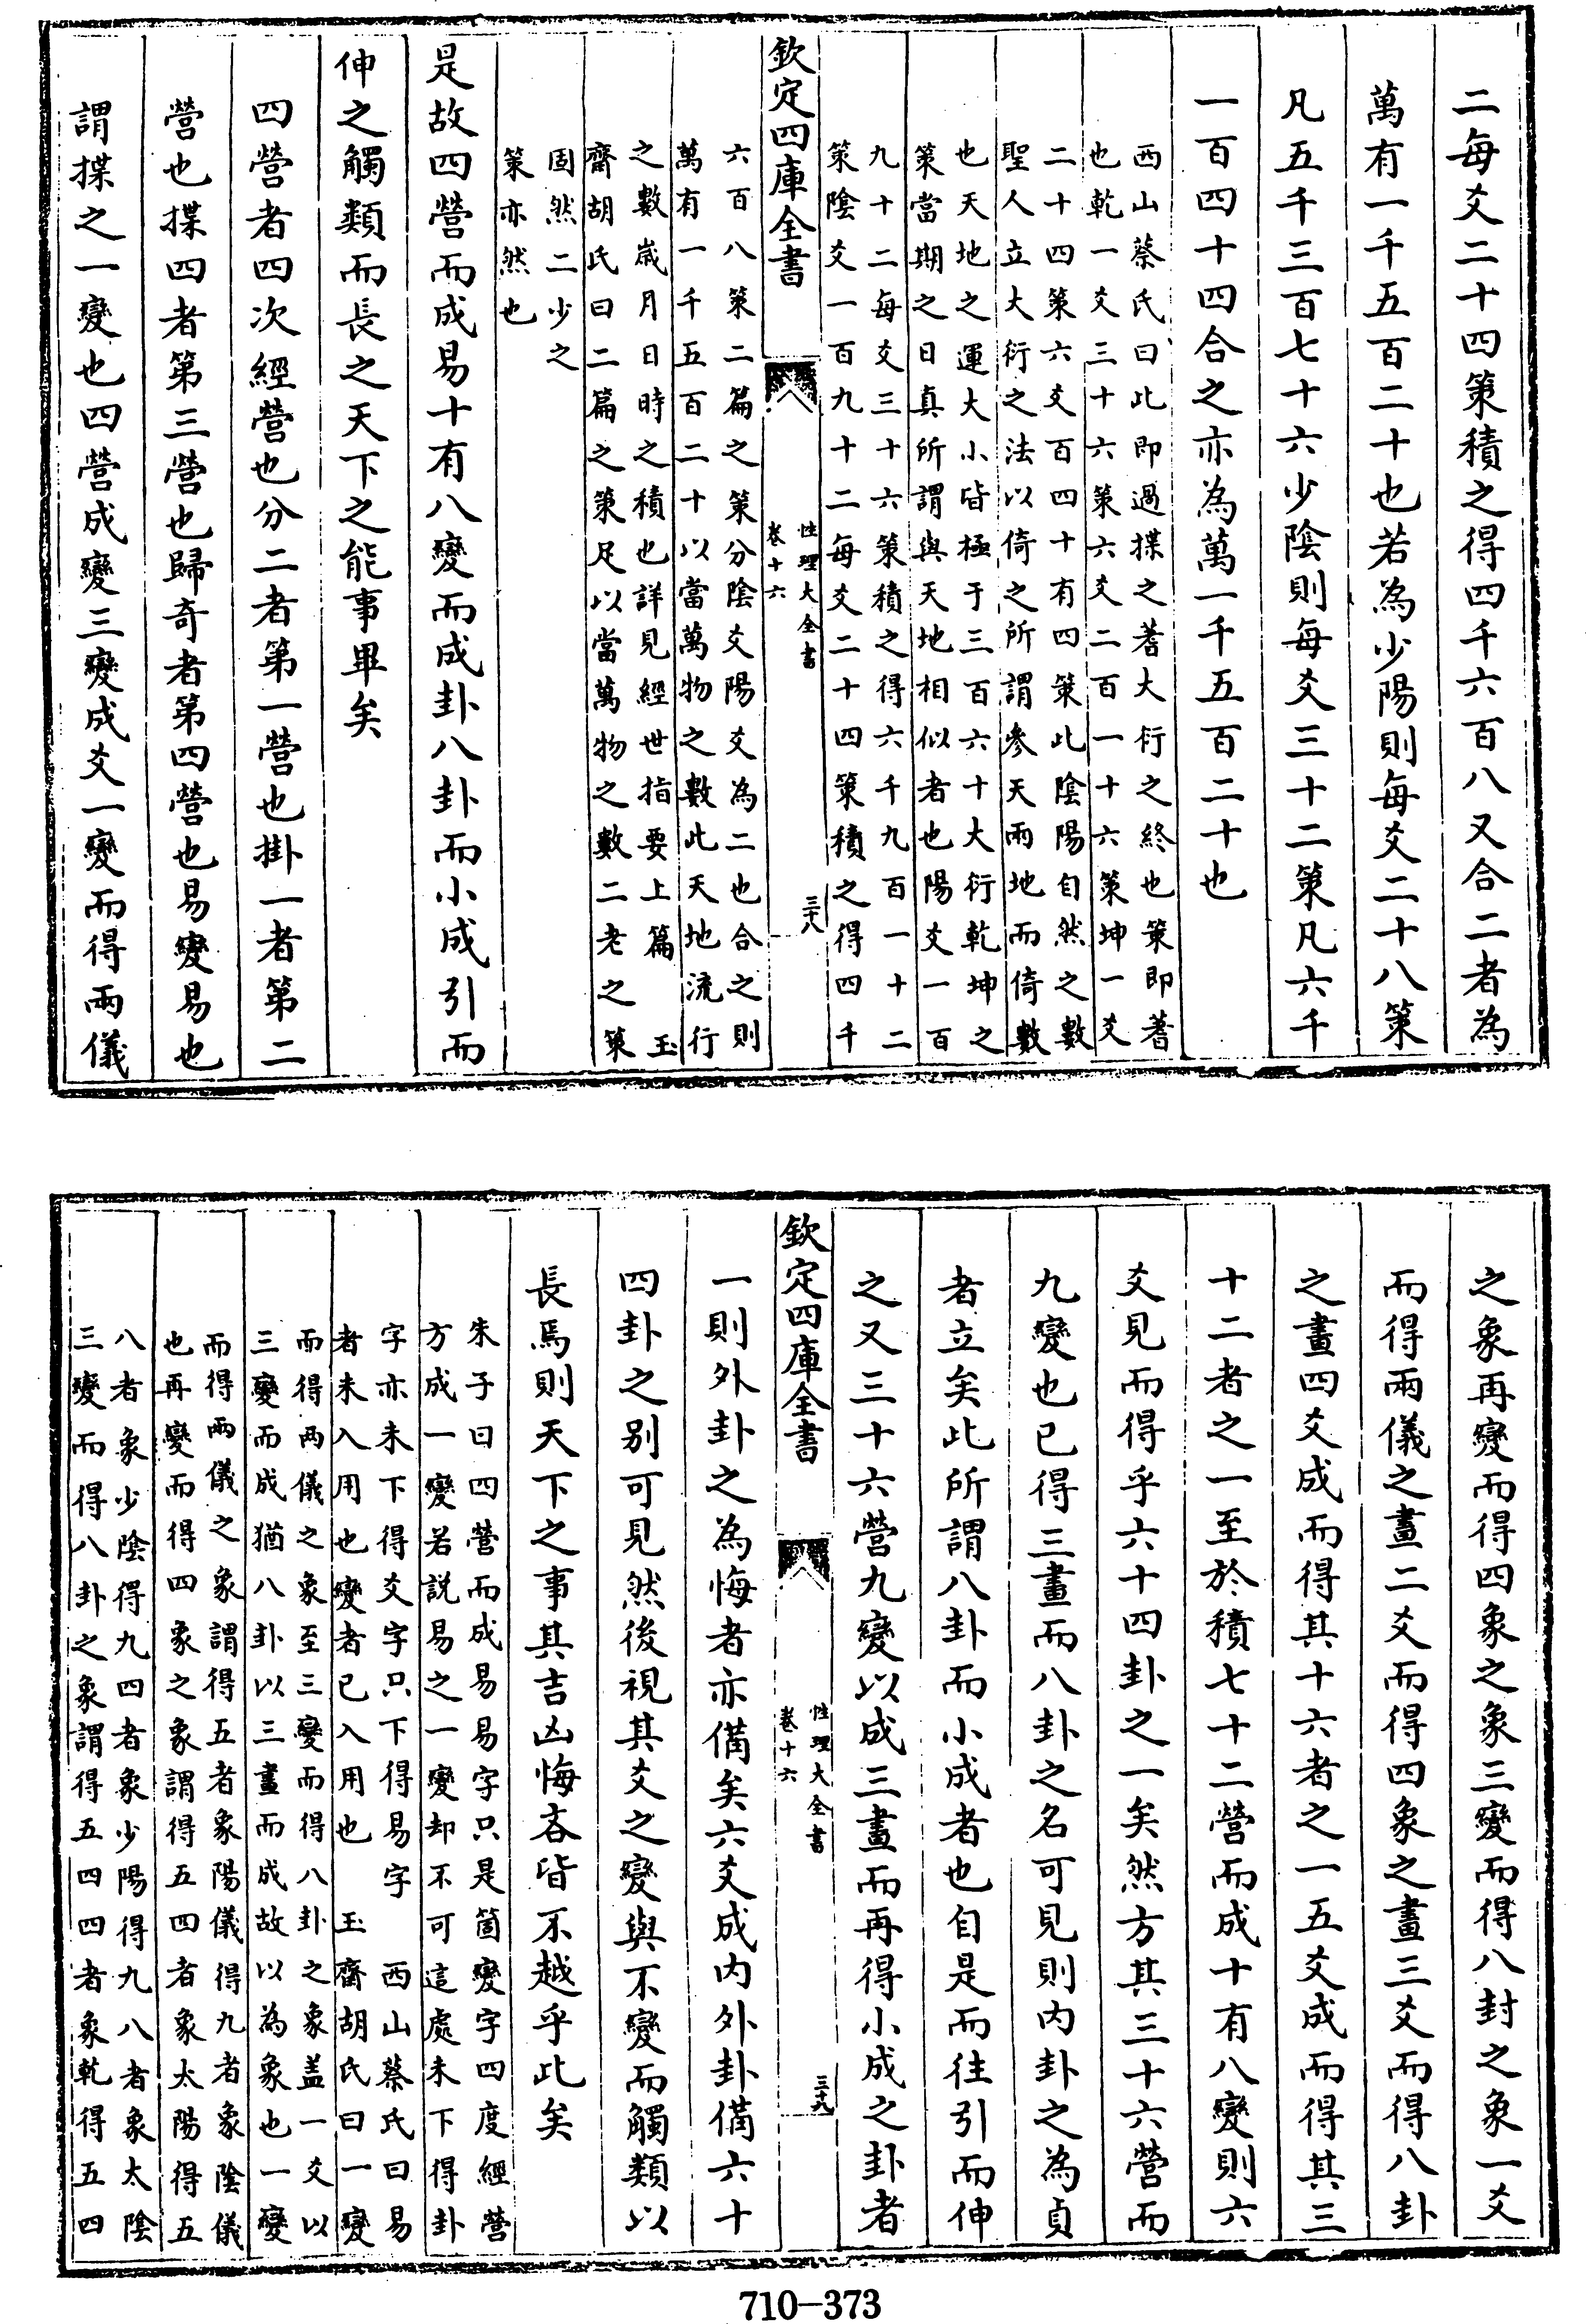 二每爻二十四策積之得四千六百八又合二者為
萬有一千五百二十也若為少陽則每爻二十八策
凡五千三百七十六少陰則每爻三十二策凡六千
一百四十四合之亦為萬一千五百二十也
西山蔡氏曰此即過揲之蓍大衍之終也策即蓍
也乾一爻三十六策六爻二百一十六策坤一爻
二十四策六爻百四十有四策此陰陽自然之數
聖人立大衍之法以倚之所謂參天兩地而倚數
也天地之運大小皆極于三百六十大衍乾坤之
策當期之日真所謂與天地相似者也陽爻一百
九十二每爻三十六策積之得六千九百一十二
策陰爻一百九十二每爻二十四策積之得四千
欽定四庫全書
性理大全書
卷十六
三十八
六百八策二篇之策分陰爻陽爻為二也合之則
萬有一千五百二十以當萬物之數此天地流行
之數歲月日時之積也詳見經世指要上篇 玉
齋胡氏曰二篇之策足以當萬物之數二老之策
固然二少之
策亦然也
是故四營而成易十有八變而成卦八卦而小成引而
伸之觸類而長之天下之能事畢矣
四營者四次經營也分二者第一營也掛一者第二
營也揲四者第三營也歸奇者第四營也易變易也
謂揲之一變也四營成變三變成爻一變而得兩儀
之象再變而得四象之象三變而得八封之象一爻
而得兩儀之畫二爻而得四象之畫三爻而得八卦
之畫四爻成而得其十六者之一五爻成而得其三
十二者之一至於積七十二營而成十有八變則六
爻見而得乎六十四卦之一矣然方其三十六營而
九變也已得三畫而八卦之名可見則內卦之為貞
者立矣此所謂八卦而小成者也自是而往引而伸
之又三十六營九變以成三畫而再得小成之卦者
欽定四庫全書
性理大全書
卷十六
三十九
一則外卦之為悔者亦備矣六爻成內外卦備六十
四卦之別可見然後視其爻之變與不變而觸類以
長焉則天下之事其吉凶悔吝皆不越乎此矣
朱子曰四營而成易易字只是箇變字四度經營
方成一變若說易之一變却不可這處未下得卦
字亦未下得爻字只下得易字 西山蔡氏曰易
者未入用也變者已入用也 玉齋胡氏曰一變
而得兩儀之象至三變而得八卦之象盖一爻以
三變而成猶八卦以三畫而成故以為象也一變
而得兩儀之象謂得五者象陽儀得九者象陰儀
也再變而得四象之象謂得五四者象太陽得五
八者象少陰得九四者象少陽得九八者象太陰
三變而得八卦之象謂得五四四者象乾得五四
710-373